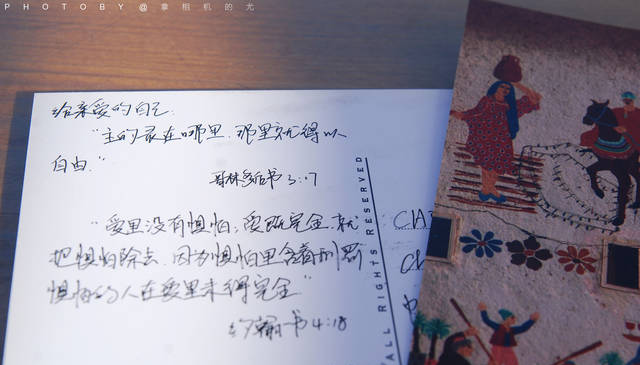 PHOTOBY@拿相机的尤
给亲爱的自己:
"主的灵在哪里,那里就得以
自由."
哥林多后书 3:17
"爱里没有惧怕;爱既完全,就
把惧怕除去,因为惧怕里含着刑罚
惧怕的人在爱里未得完全"
约翰一书4:18
ALL RIGHTS RESERVED